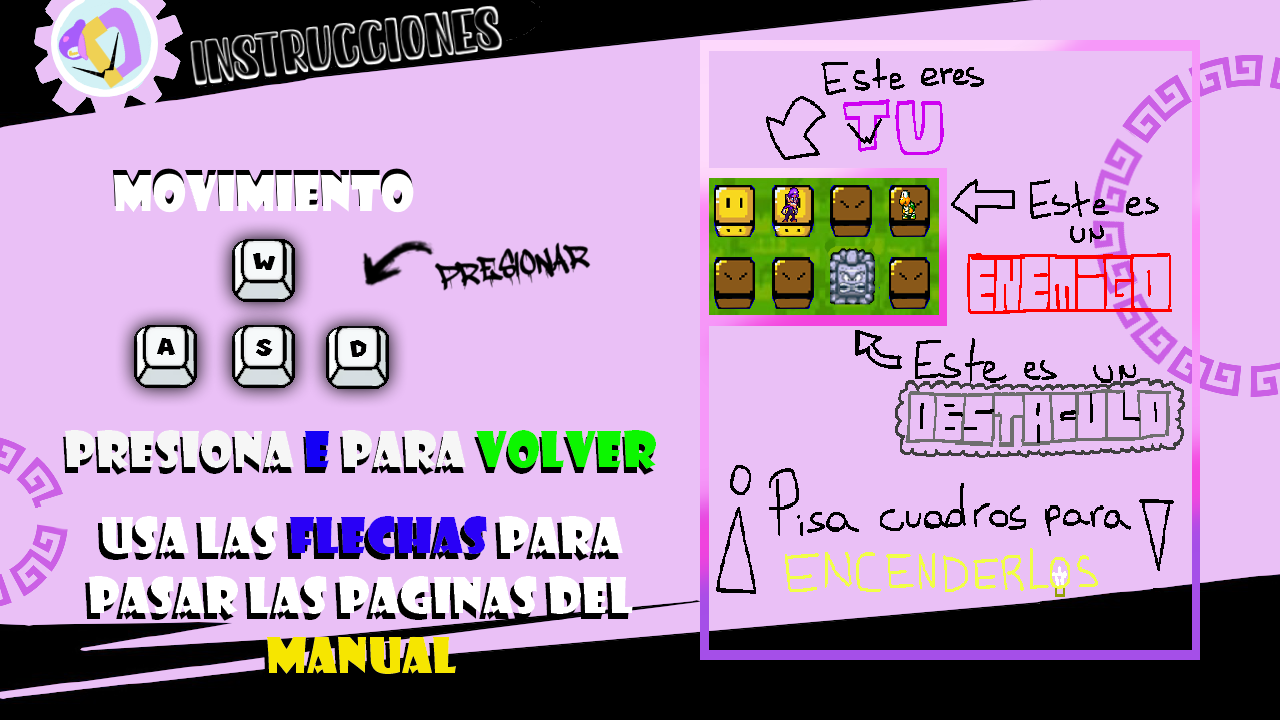 INSTRUCCIONES
MOVIMIENTO
W
PRESIONAR
A S D
PRESIONA E PARA VOLVER
USA LAS FLECHAS PARA
PASAR LAS PAGINAS DEL
MANUAL
Este eres
TU
Este es
UN
ENEMIGO
Este es un
OBSTACULO
¡Pisa cuadros para
ENCENDERLOS!